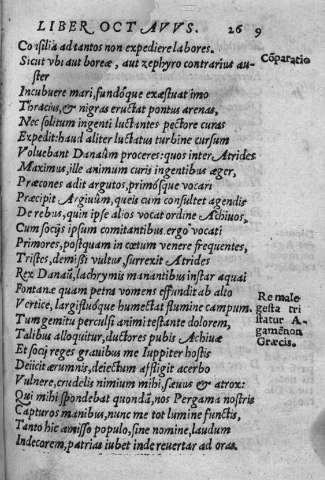 LIBER OCTAVVS. 26 9
Cōsilia ad tantos non expediere labores.
Sicut vbi aut boreæ, aut zephyro contrarius au-
Cōparatio
ster
Incubuere mari, fundóque exæstuat imo
Thracius, & nigras eructat pontus arenas,
Nec solitum ingenti luctantes pectore curas
Expedit: haud aliter luctatus turbine cursum
Voluebant Danaûm proceres: quos inter Atrides
Maximus, ille animum curis ingentibus æger,
Præcones adit argutos, primósque vocari
Præcipit Argiuûm, queis cum consultet agendis
De rebus, quin ipse alios vocat ordine Achiuos,
Cum socijs ipsum comitantibus. ergo vocati
Primores, postquam in cœtum venere frequentes,
Tristes, demißi vultus, surrexit Atrides
Rex Danaû, lachrymis manantibus instar aquai
Fontanæ quam petra vomens effundit ab alto
Vertice, largifluóque humectat flumine campum.
Re male
gesta tri
statur A-
gamēnon
Græcis.
Tum gemitu perculsi animi testante dolorem,
Talibus alloquitur, ductores pubis Achiuæ
Et socij reges grauibus me Iuppiter hostis
Deiicit ærumnis, deiectum affligit acerbo
Vulnere, crudelis nimium mihi, sæuus & atrox:
Qui mihi spondebat quondā, nos Pergama nostris
Capturos manibus, nunc me tot lumine functis,
Tanto hic amisso populo, sine nomine, laudum
Indecorem, patrias iubet inde reuertar ad oras.